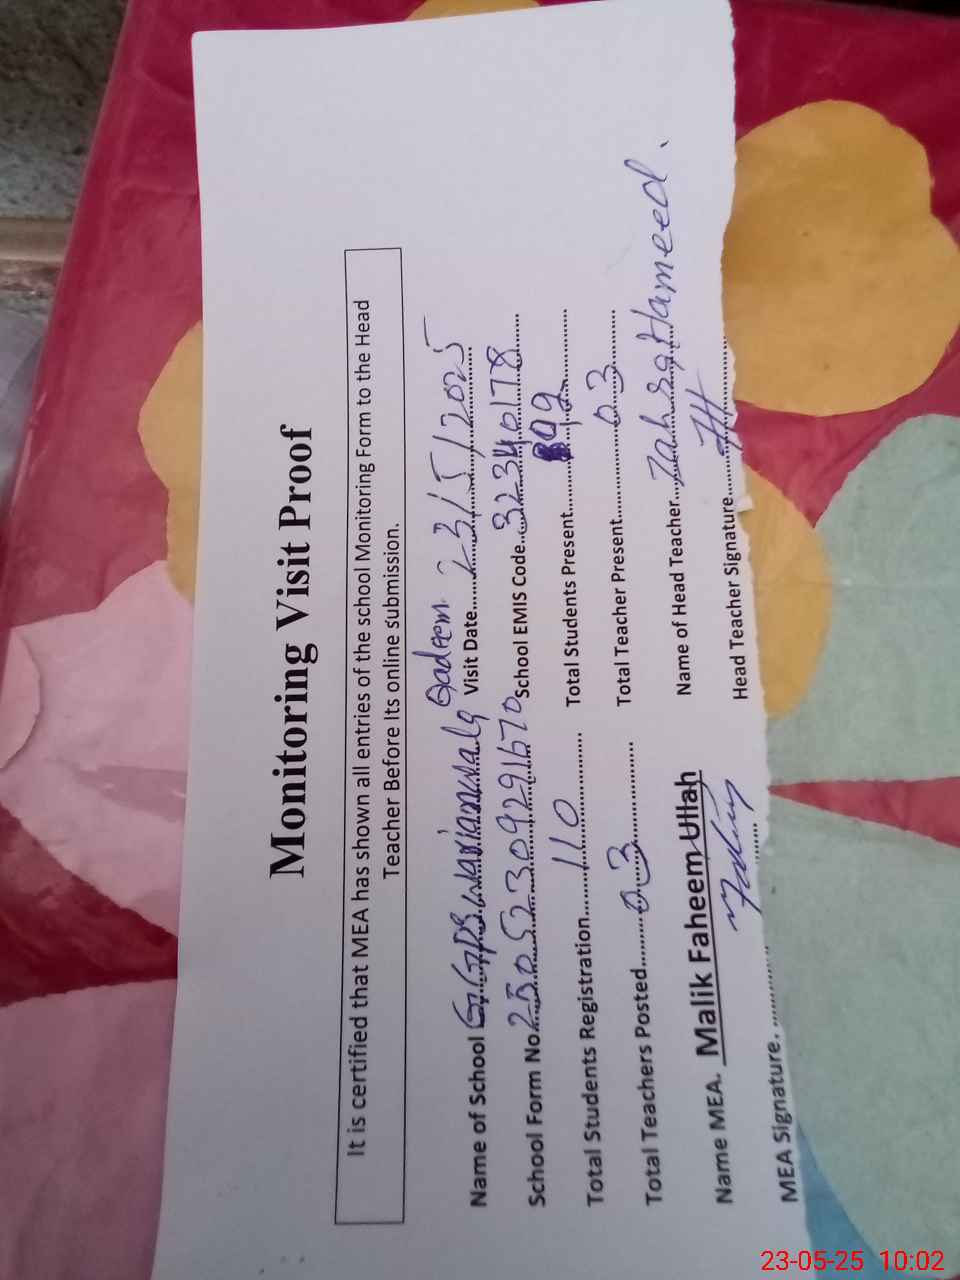 Monitoring Visit Proof
It is certified that MEA has shown all entries of the school Monitoring Form to the Head
Teacher Before Its online submission.
Name of School GGPS Qadeem Visit Date 23/5/2025
School Form No. 25052309291670 School EMIS Code 32340178
Total Students Registration 110 Total Students Present 99
Total Teachers Posted 03 Total Teacher Present 03
Name MEA. Malik Faheem Ullah Name of Head Teacher Zahra Hameed.
MEA Signature. Head Teacher Signature
23-05-25 10:02